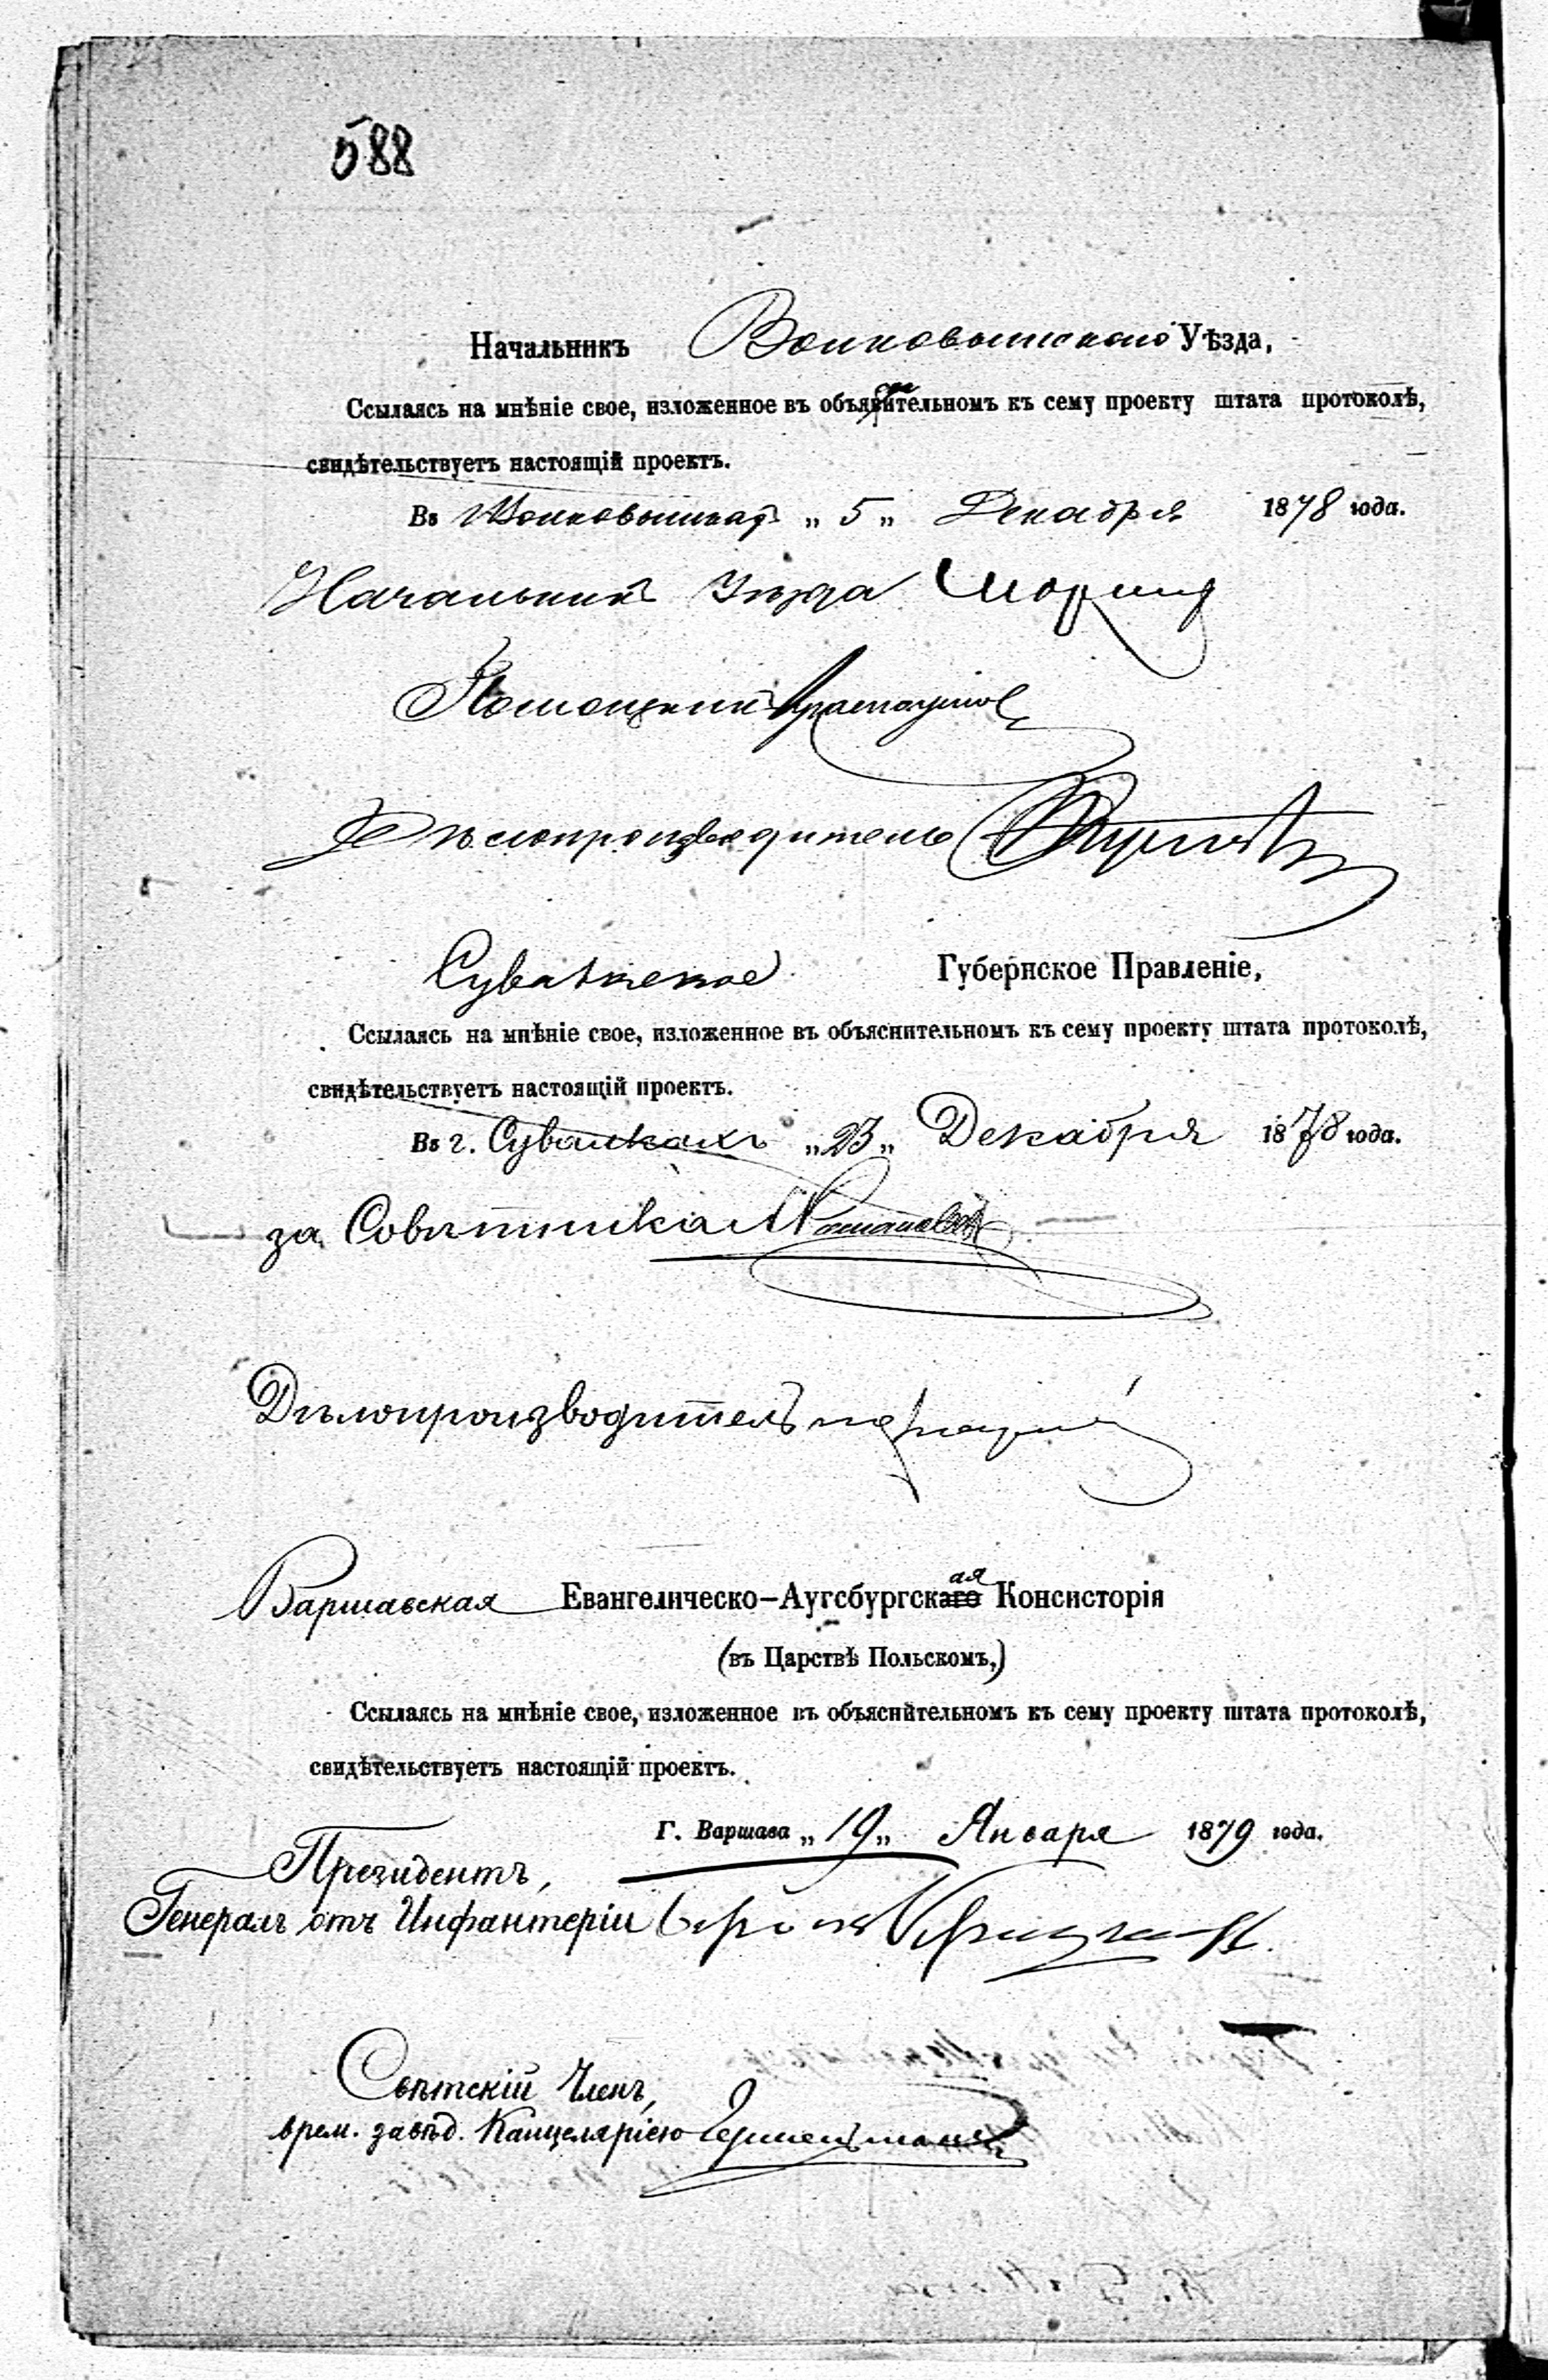 588
Начальникъ Волковышскаго Уѣзда,
Ссылаясь на мнѣніе свое, изложенное въ объяснительномъ къ сему проекту штата протоколѣ,
свидѣтельствуетъ настоящій проектъ.
Въ Волковышкахъ „ 5 „ Декабря 1878 года.
Начальникъ Уѣзда
Помощникъ
Дѣлопроизводитель
Сувалкское Губернское Правленіе,
Ссылаясь на мнѣніе свое, изложенное въ объяснительномъ къ сему проекту штата протоколѣ,
свидѣтельствуетъ настоящій проектъ.
Въ г. Сувалкахъ „ 23 „ Декабря 1878 года.
за Совѣтника
Дѣлопроизводитель
Варшавская Евангелическо–Аугсбургская Консисторія
(въ Царствѣ Польскомъ,)
Ссылаясь на мнѣніе свое, изложенное въ объяснительномъ къ сему проекту штата протоколѣ,
свидѣтельствуетъ настоящій проектъ.
Г. Варшава „ 19 „ Января 1879 года.
Президентъ,
Генералъ отъ Инфантеріи
Свѣтскій Членъ,
врем. завѣд. Канцеляріею